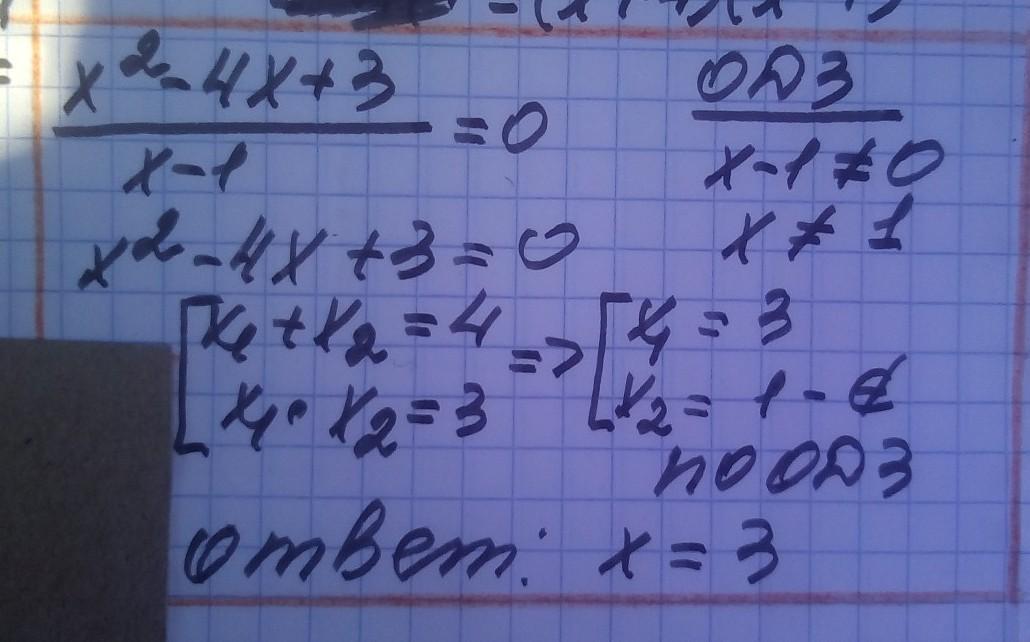 x² - 4x + 3 / x - 1 = 0
ОДЗ
x - 1 ≠ 0
x ≠ 1
x² - 4x + 3 = 0
[x₁ + x₂ = 4
x₁ · x₂ = 3
=> [x₁ = 3
x₂ = 1 - ∉
по ОДЗ
ответ: x = 3